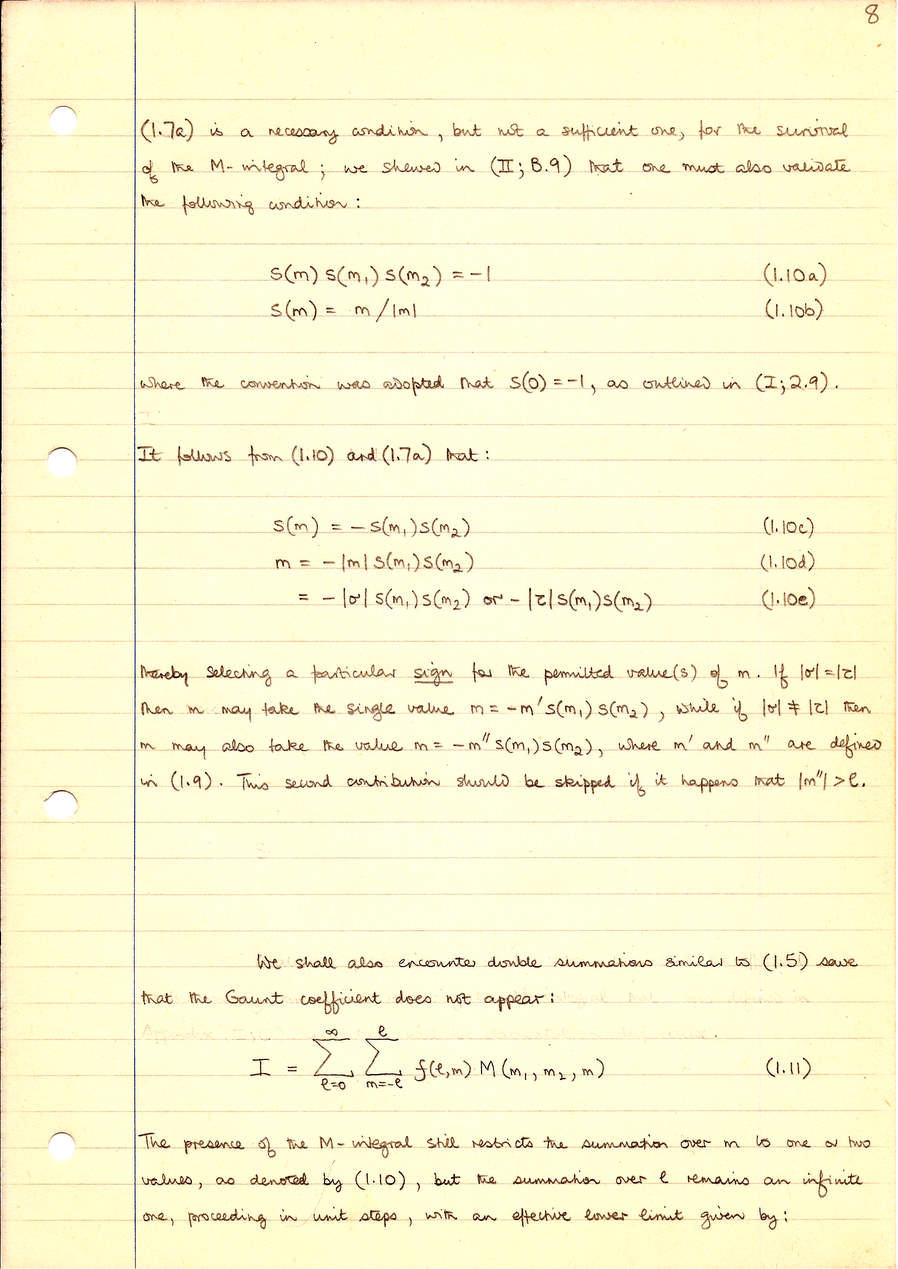 8
(1.7a) is a necessary condition, but not a sufficient one, for the survival
of the M-integral; we shewed in (II; B.9) that one must also validate
the following condition:
S(m) S(m₁) S(m₂) = -1 (1.10a)
S(m) = m/|m| (1.10b)
where the convention was adopted that S(0) = -1, as outlined in (I; 2.9).
It follows from (1.10) and (1.7a) that:
S(m) = - S(m₁) S(m₂) (1.10c)
m = - |m| S(m₁) S(m₂) (1.10d)
= - |σ| S(m₁) S(m₂) or - |τ| S(m₁) S(m₂) (1.10e)
thereby selecting a particular sign for the permitted value(s) of m. If |σ| = |τ|
then m may take the single value m = -m′ S(m₁) S(m₂), while if |σ| ≠ |τ| then
m may also take the value m = -m″ S(m₁) S(m₂), where m′ and m″ are defined
in (1.9). This second contribution should be skipped if it happens that |m″| > ℓ.
We shall also encounter double summations similar to (1.5) save
that the Gaunt coefficient does not appear:
I = ∑_{ℓ=0}^{∞} ∑_{m=-ℓ}^{ℓ} f(ℓ,m) M(m₁, m₂, m) (1.11)
The presence of the M-integral still restricts the summation over m to one or two
values, as denoted by (1.10), but the summation over ℓ remains an infinite
one, proceeding in unit steps, with an effective lower limit given by: